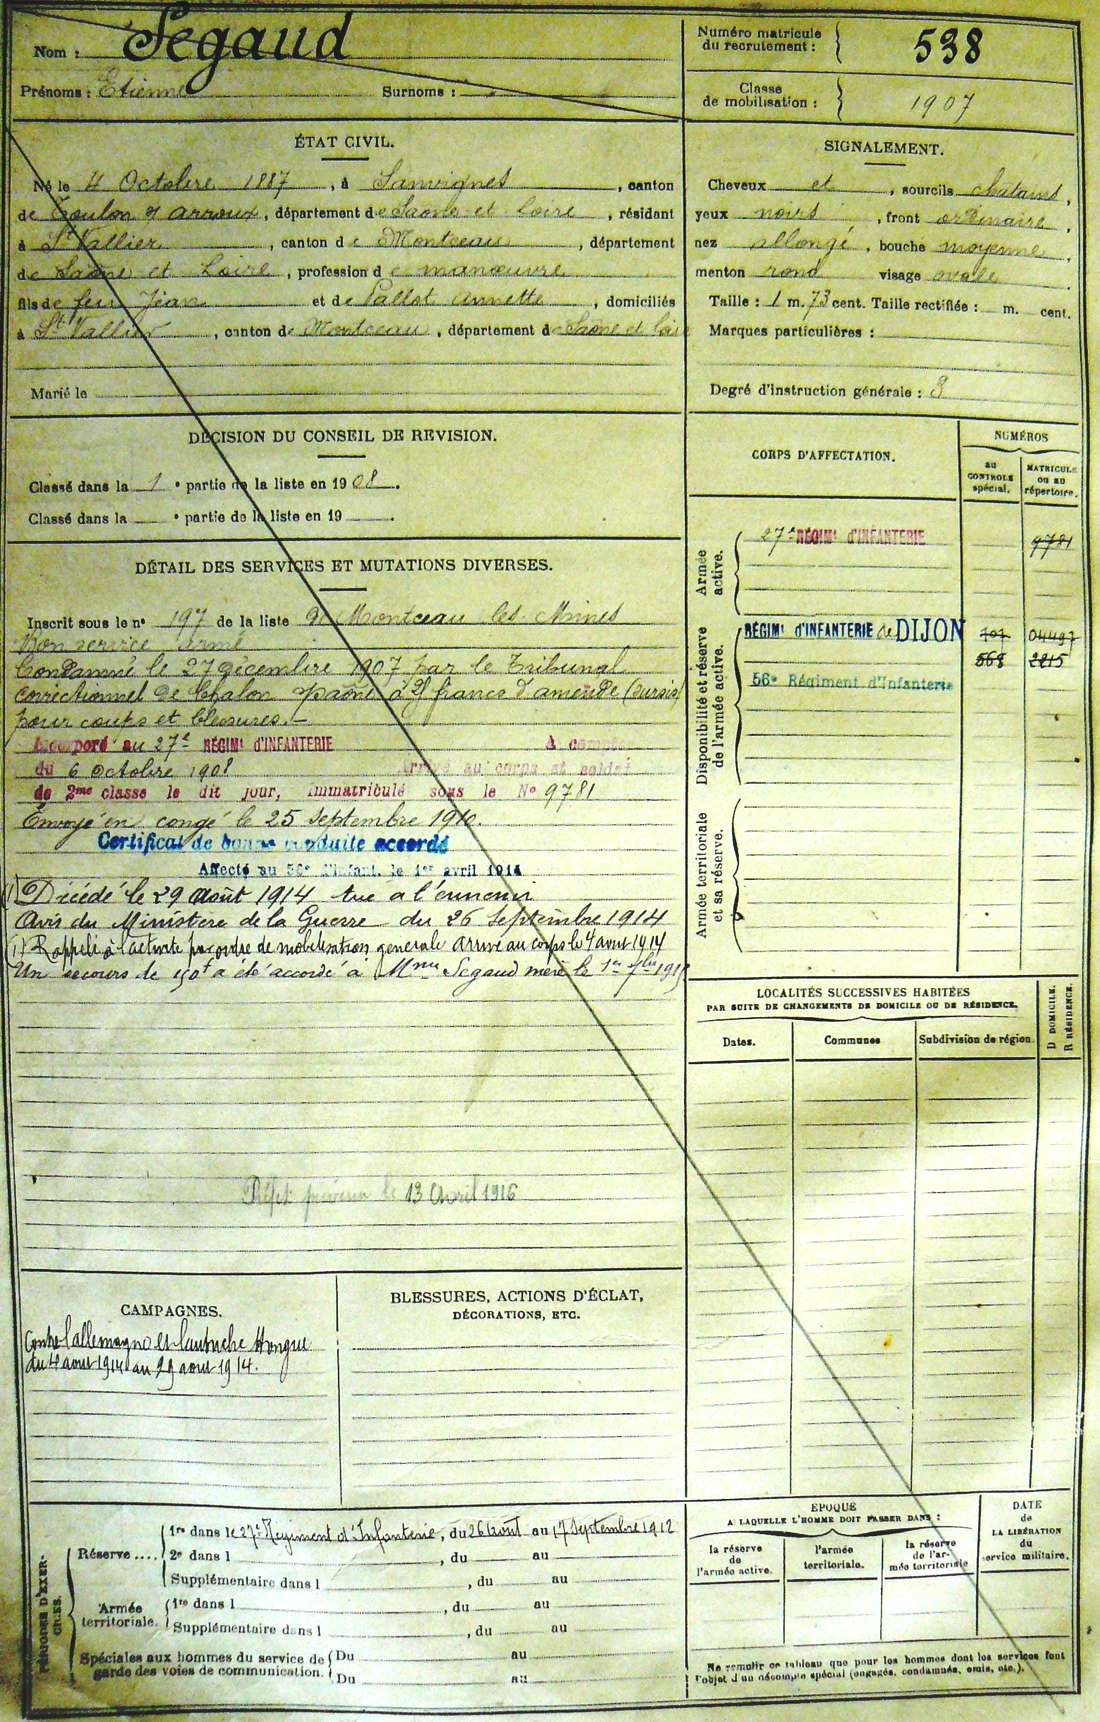 Nom : Segaud
Prénoms : Etienne Surnoms :
Numéro matricule du recrutement : 538
Classe de mobilisation : 1907
ÉTAT CIVIL.
Né le 4 Octobre 1887, à Sanvignes, canton
de Toulon s/ Arroux, département de Saône et Loire, résidant
à St Vallier, canton de Montceau, département
de Saône et Loire, profession de manœuvre
fils de feu Jean et de Pallot Annette, domiciliés
à St Vallier, canton de Montceau, département de Saône et Loire
Marié le
SIGNALEMENT.
Cheveux et, sourcils chatains,
yeux noirs, front ordinaire,
nez allongé, bouche moyenne,
menton rond visage ovale.
Taille : 1 m. 73 cent. Taille rectifiée : m. cent.
Marques particulières :
Degré d'instruction générale : 3
DÉCISION DU CONSEIL DE REVISION.
Classé dans la 1e partie de la liste en 1908.
Classé dans la e partie de la liste en 19 .
DÉTAIL DES SERVICES ET MUTATIONS DIVERSES.
Inscrit sous le no 197 de la liste de Montceau les Mines
Bon service armé
Condamné le 27 décembre 1907 par le Tribunal
correctionnel de Chalon s/Saône à 25 francs d'amende (sursis)
pour coups et blessures.
Incorporé au 27e RÉGIMt D'INFANTERIE A compter
du 6 octobre 1908 Arrivé au corps et soldat
de 2me classe le dit jour, Immatriculé sous le No 9781
Envoyé en congé le 25 septembre 1910.
Certificat de bonne conduite accordé
Affecté au 56e d'Infant. le 1er avril 1914
(1) Décédé le 29 août 1914 tué à l'ennemi
Avis du Ministère de la Guerre du 26 septembre 1914
(1) Rappelé à l'activité par ordre de mobilisation générale arrivé au corps le 4 aout 1914
Un secours de 150f a été accordé à Mme Segaud mère le 1er 7bre 1915
13 Avril 1916
CORPS D'AFFECTATION.
NUMÉROS
AU CONTROLE spécial.
MATRICULE OU AU répertoire.
Armée active.
27e RÉGIMt D'INFANTERIE 9781
Disponibilité et réserve de l'armée active.
RÉGIMt D'INFANTERIE de DIJON 04497
568 2215
56e Régiment d'Infanterie
Armée territoriale et sa réserve.
LOCALITÉS SUCCESSIVES HABITÉES
PAR SUITE DE CHANGEMENTS DE DOMICILE OU DE RÉSIDENCE.
Dates. Communes Subdivision de région.
D DOMICILE.
R RÉSIDENCE.
CAMPAGNES.
Contre l'allemagne et l'autriche Hongrie
du 4 aout 1914 au 29 aout 1914.
BLESSURES, ACTIONS D'ÉCLAT,
DÉCORATIONS, ETC.
PÉRIODES D'EXERCICES.
Réserve ....
1re dans le 27e Régiment d'Infanterie, du 26 Aout au 17 Septembre 1912
2e dans l , du au
Supplémentaire dans l , du au
Armée territoriale.
1re dans l , du au
Supplémentaire dans l , du au
Spéciales aux hommes du service de garde des voies de communication.
Du au
Du au
EPOQUE
A LAQUELLE L'HOMME DOIT PASSER DANS :
la réserve de l'armée active.
l'armée territoriale.
la réserve de l'armée territoriale
DATE de LA LIBÉRATION du service militaire.
Ne remplir ce tableau que pour les hommes dont les services font
l'objet d'un décompte spécial (engagés, condamnés, omis, etc.).